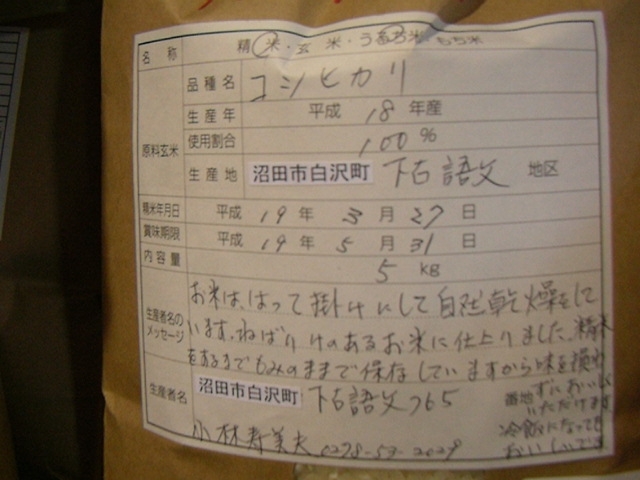 名称 精米・玄米・うるち米・もち米
原料玄米
品種名 コシヒカリ
生産年 平成18年産
使用割合 100%
生産地 沼田市白沢町 下古語父 地区
精米年月日 平成19年3月27日
賞味期限 平成19年5月31日
内容量 5kg
生産者名のメッセージ
お米は、はって掛けにして自然乾燥をして
います。ねばりけのあるお米に仕上りました。精米
をするまでもみのままで保存していますから味を損わ
ずにおいしく
いただけます
冷飯になっても
おいしいです
生産者名 沼田市白沢町 下古語父765 番地
小林寿美夫 0278-53-2029